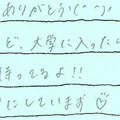 ありがとう(^ー^)
ど、大学に入った
待ってるよ!!
にしています♡